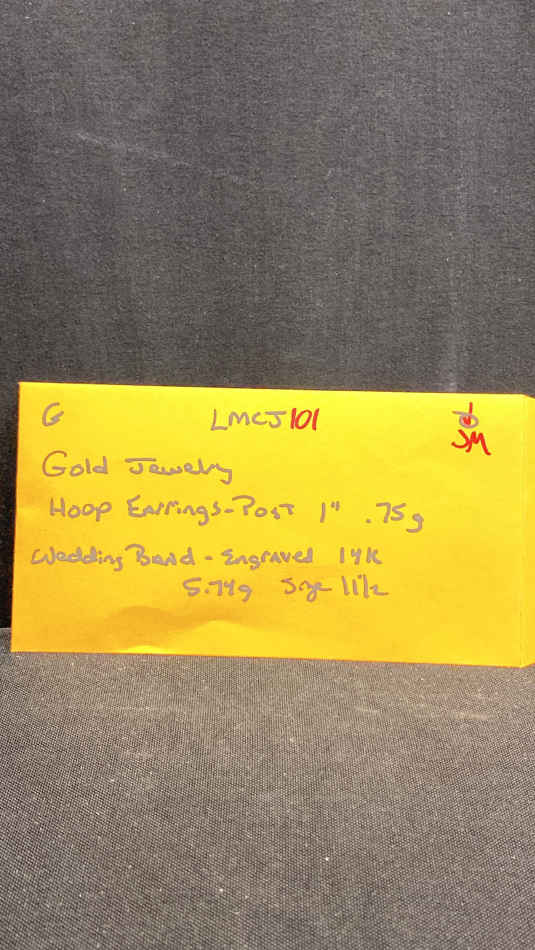 G LMCJ101
JM
Gold Jewelry
Hoop Earrings-Post 1" .75g
Wedding Band - Engraved 14K
5.74g Size 11 1/2